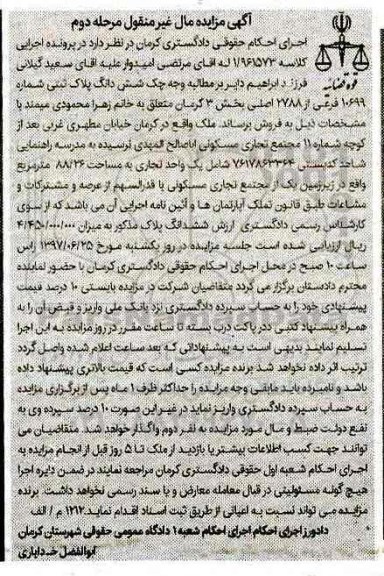 آگهی مزایده مال غیر منقول مرحله دوم
اجرای احکام حقوقی دادگستری کرمان در نظر دارد در پرونده اجرایی
کلاسه ۱/۹۶۱۵۷۳ له آقای مرتضی امیدوار علیه آقای سعید گیلانی
فرزند ابراهیم دایر بر مطالبه وجه چک شش دانگ پلاک ثبتی شماره
۱۰۶۹۹ فرعی از ۲۷۸۸ اصلی بخش ۳ کرمان متعلق به خانم زهرا محمودی میمند با
مشخصات ذیل به فروش برساند. ملک واقع در کرمان خیابان مطهری غربی بعد از
کوچه شماره ۱۱ مجتمع تجاری مسکونی اباصالح المهدی نرسیده به مدرسه راهنمایی
شاهد کدپستی ۷۶۱۷۸۶۳۳۶۴ شامل یک واحد تجاری به مساحت ۸۸/۲۶ مترمربع
واقع در زیرزمین یک از مجتمع تجاری مسکونی با قدرالسهم از عرصه و مشترکات و
مشاعات طبق قانون تملک آپارتمان ها و آئین نامه اجرایی آن می باشد که از سوی
کارشناس رسمی دادگستری ارزش ششدانگ پلاک مذکور به میزان ۴/۴۵۰/۰۰۰/۰۰۰
ریال ارزیابی شده است جلسه مزایده در روز یکشنبه مورخ ۱۳۹۷/۰۶/۲۵ راس
ساعت ۱۰ صبح در محل اجرای احکام حقوقی دادگستری کرمان با حضور نماینده
محترم دادستان برگزار می گردد متقاضیان شرکت در مزایده بایستی ۱۰ درصد قیمت
پیشنهادی خود را به حساب سپرده دادگستری نزد بانک ملی واریز و فیش آن را به
همراه پیشنهاد کتبی در پاکت درب بسته تا ساعت مقرر در روز مزایده به این اجرا
تسلیم نمایند بدیهی است به پیشنهاداتی که بعد ساعت اعلام شده واصل گردد
ترتیب اثر داده نخواهد شد برنده مزایده کسی است که قیمت بالاتری پیشنهاد داده
باشد و نامبرده باید مابقی وجه مزایده را حداکثر ظرف ۱ ماه پس از برگزاری مزایده
به حساب سپرده دادگستری واریز نماید در غیر این صورت ۱۰ درصد سپرده وی به
نفع دولت ضبط و مال مورد مزایده به نفر دوم واگذار خواهد شد. متقاضیان می
توانند جهت کسب اطلاعات بیشتر یا بازدید از ملک تا ۵ روز قبل از انجام مزایده به
اجرای احکام شعبه اول حقوقی دادگستری کرمان مراجعه نمایند در ضمن دایره اجرا
هیچ گونه مسئولیتی در قبال معامله معارض و یا سند رسمی نخواهد داشت. برنده
مزایده می تواند نسبت به اعیانی از طریق ثبت اسناد اقدام نماید.۱۲۱۲ م / الف
دادورز اجرای احکام اجرای احکام شعبه ۱ دادگاه عمومی حقوقی شهرستان کرمان
ابوالفضل خدایاری
قوه قضائیه